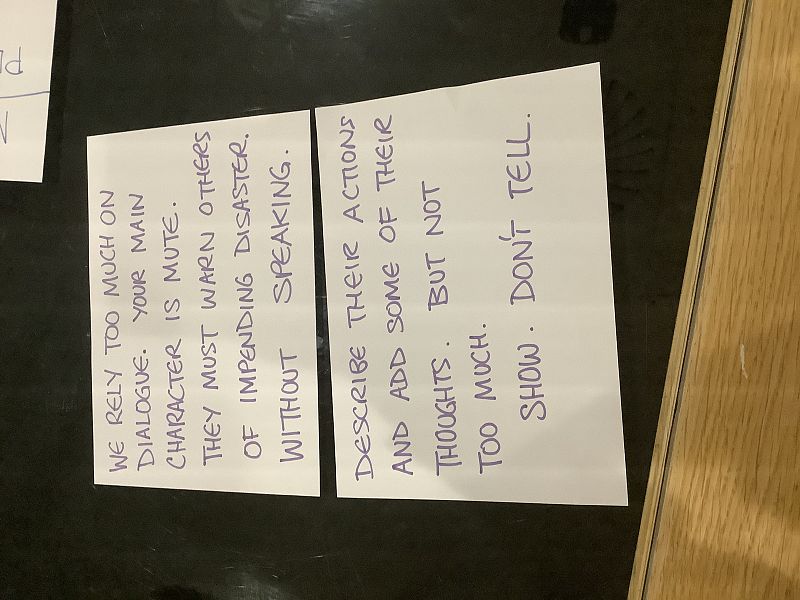 WE RELY TOO MUCH ON
DIALOGUE. YOUR MAIN
CHARACTER IS MUTE.
THEY MUST WARN OTHERS
OF IMPENDING DISASTER.
WITHOUT SPEAKING.
DESCRIBE THEIR ACTIONS
AND ADD SOME OF THEIR
THOUGHTS. BUT NOT
TOO MUCH.
SHOW. DON'T TELL.